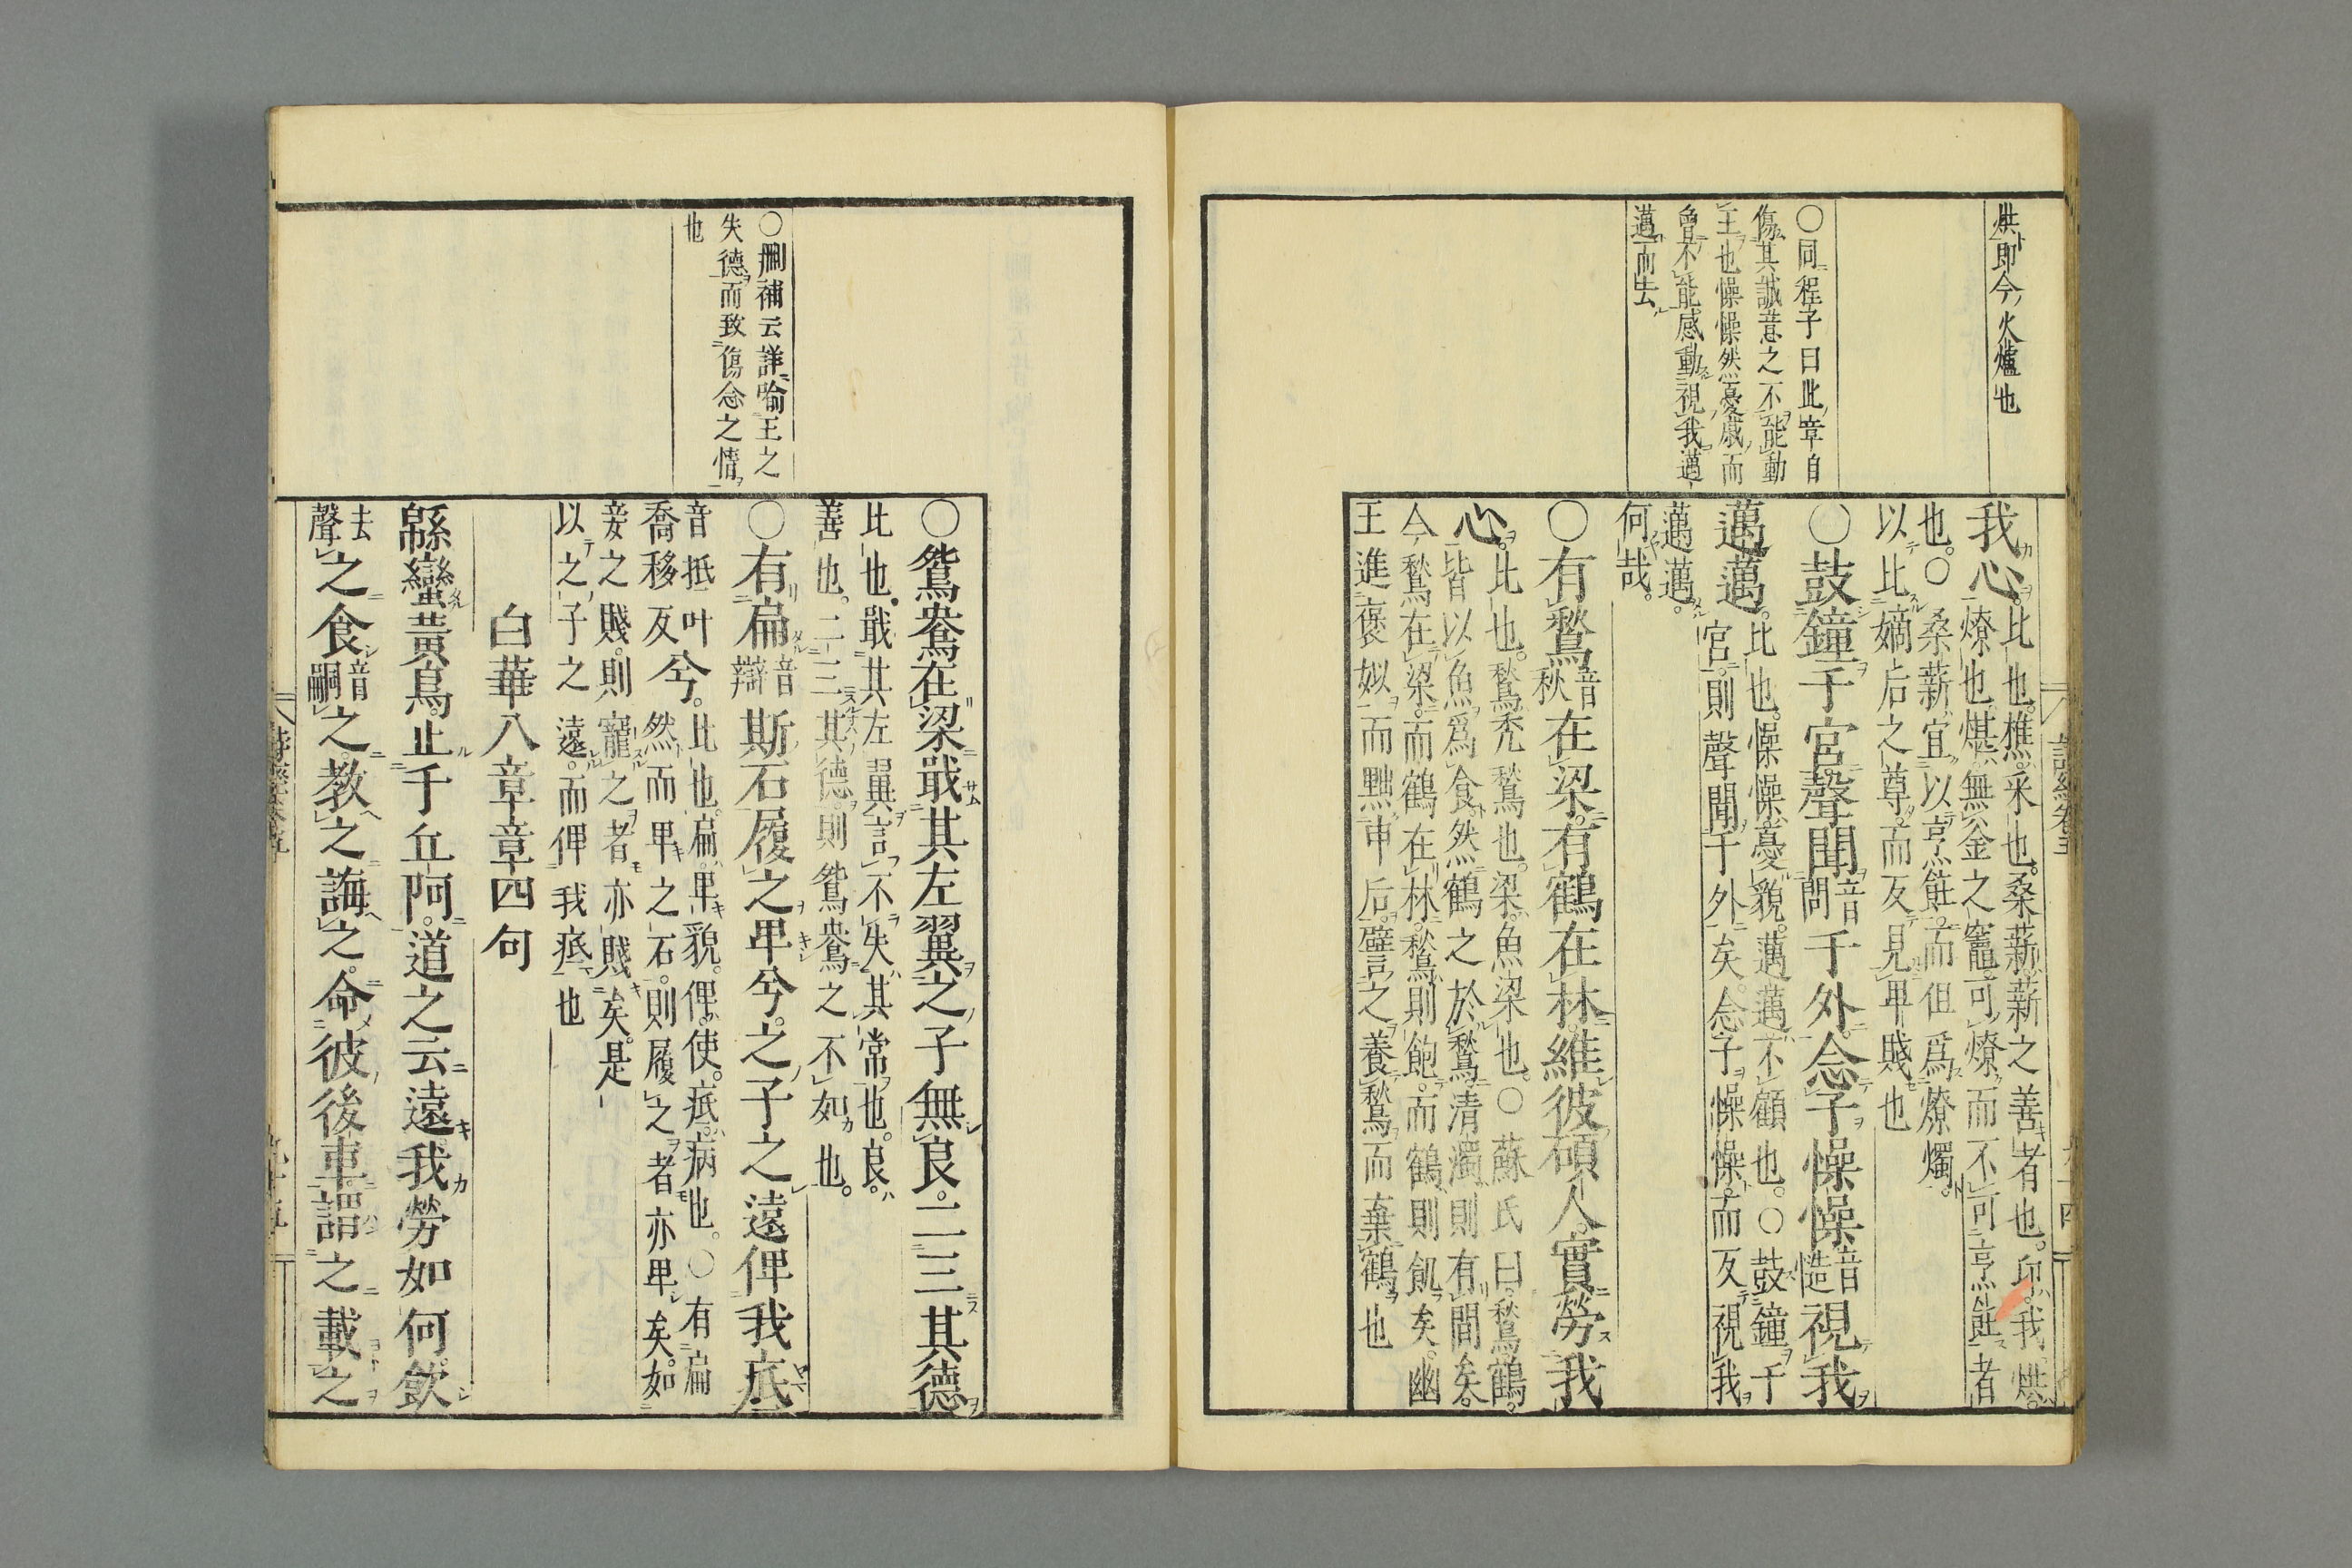 烘即今火爐也
○同程子曰此章自
傷其誠意之不能動
王也懆懆然憂戚而
曾不能感動視我邁
邁而去
我心比也樵采也桑薪薪之善者也卬我烘
燎也煁無釜之竈可燎而不可烹飪者
也○桑薪宜以烹飪而但爲燎燭
以比嫡后之尊而反見卑賤也
○鼓鐘于宮聲聞音問于外念子懆懆音慥視我
邁邁比也懆懆憂貌邁邁不顧也○鼓鐘于
宮則聲聞于外矣念子懆懆而反視我
邁邁
何哉
○有鶖音秋在梁有鶴在林維彼碩人實勞我
心比也鶖禿鶖也梁魚梁也○蘇氏曰鶖鶴
皆以魚爲食然鶴之於鶖清濁則有間矣
今鶖在梁而鶴在林鶖則飽而鶴則飢矣幽
王進褒姒而黜申后譬之養鶖而棄鶴也
○刪補云詳喻王之
失德而致傷念之情
也
○鴛鴦在梁戢其左翼之子無良二三其德
比也戢其左翼言不失其常也良
善也二三其德則鴛鴦之不如也
○有扁音辯斯石履之卑兮之子之遠俾我疧
音抵叶喬移反兮比也扁卑貌俾使疧病也○有扁
然而卑之石則履之者亦卑矣如
妾之賤則寵之者亦賤矣是
以之子之遠而俾我疧也
白華八章章四句
緜蠻黃鳥止于丘阿道之云遠我勞如何飲
去聲之食音嗣之教之誨之命彼後車謂之載之